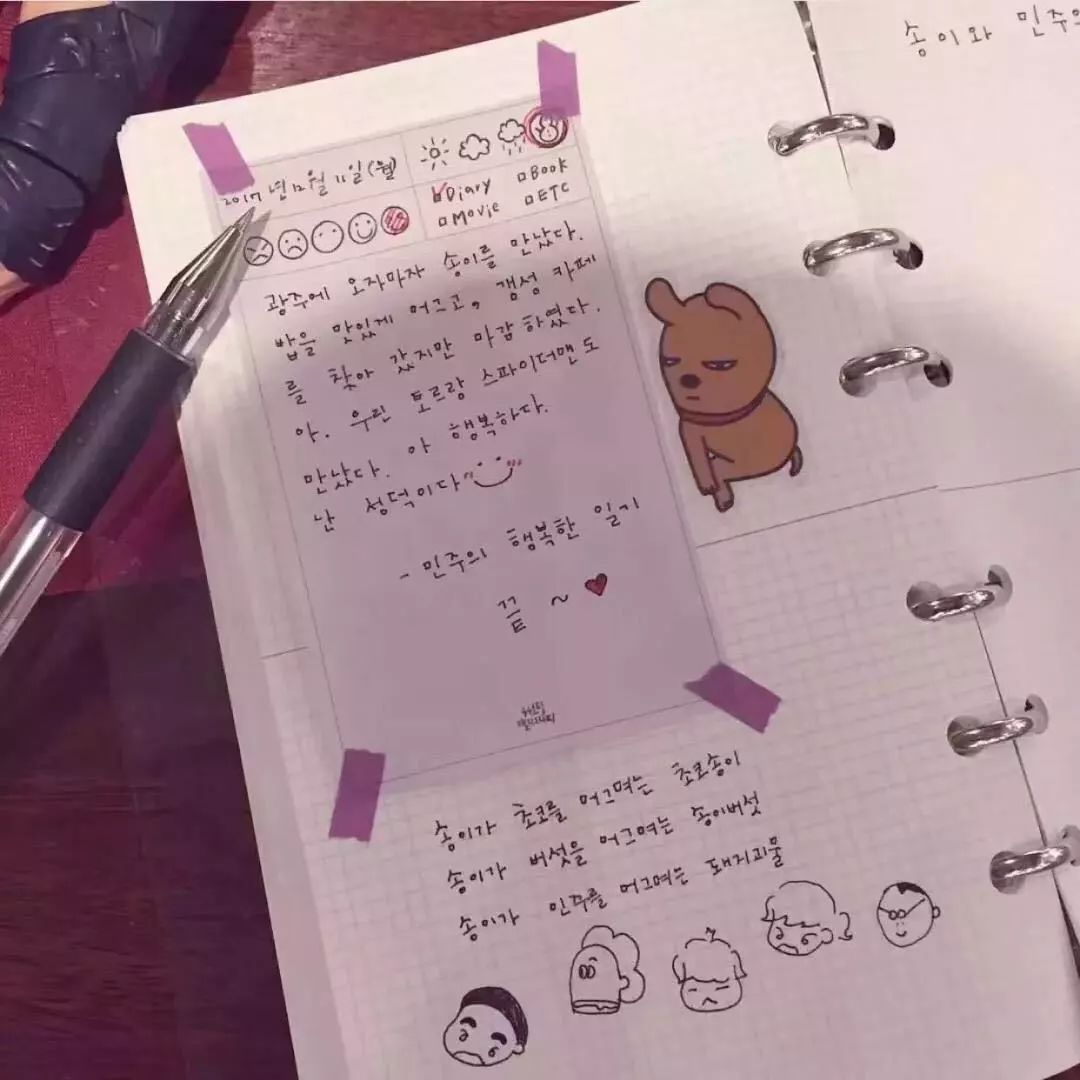 송이와 민주의
2017년 12월 11일 (월)
Diary
Book
Movie
ETC
광주에 오자마자 송이를 만났다.
밥을 맛있게 머그고, 갬성 카페
를 찾아 갔지만 마감하였다.
아. 우린 토르랑 스파이더맨도
만났다. 아 행복하다.
난 성덕이다
- 민주의 행복한 일기
끝 ~
송이가 초코를 머그며는 초코송이
송이가 버섯을 머그며는 송이버섯
송이가 민주를 머그며는 돼지괴물